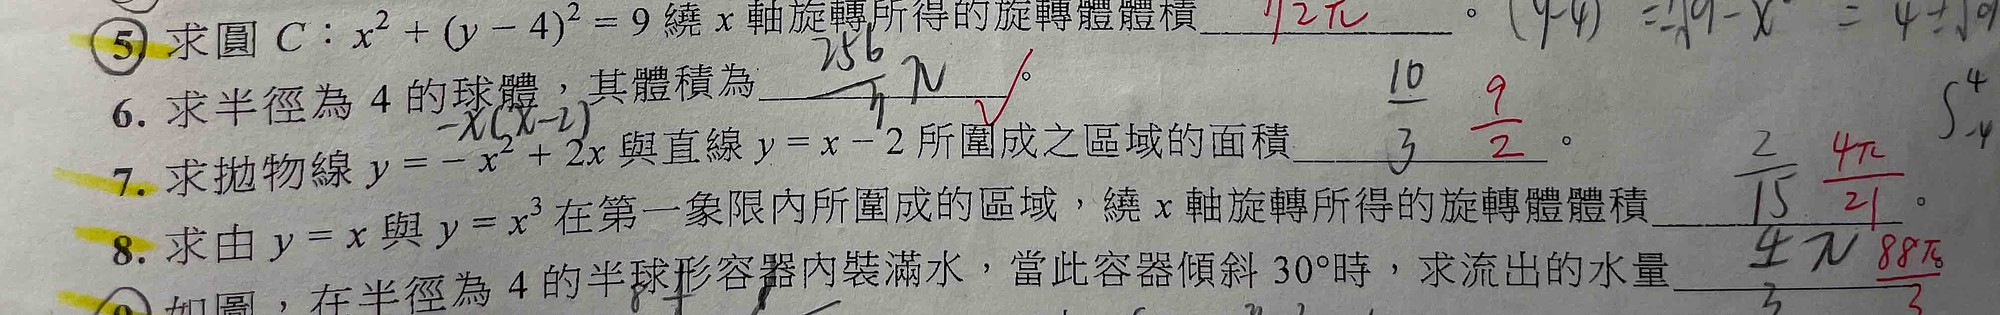 5 求圓 C：x² + (y − 4)² = 9 繞 x 軸旋轉所得的旋轉體體積 72π 。
6. 求半徑為 4 的球體，其體積為 256/3 π 。
−x(x−2)
7. 求拋物線 y = − x² + 2x 與直線 y = x − 2 所圍成之區域的面積 10/3 9/2 。
8. 求由 y = x 與 y = x³ 在第一象限內所圍成的區域，繞 x 軸旋轉所得的旋轉體體積 2/15 4π/21 。
9 如圖，在半徑為 4 的半球形容器內裝滿水，當此容器傾斜 30°時，求流出的水量 4/3 π 88π/3 。